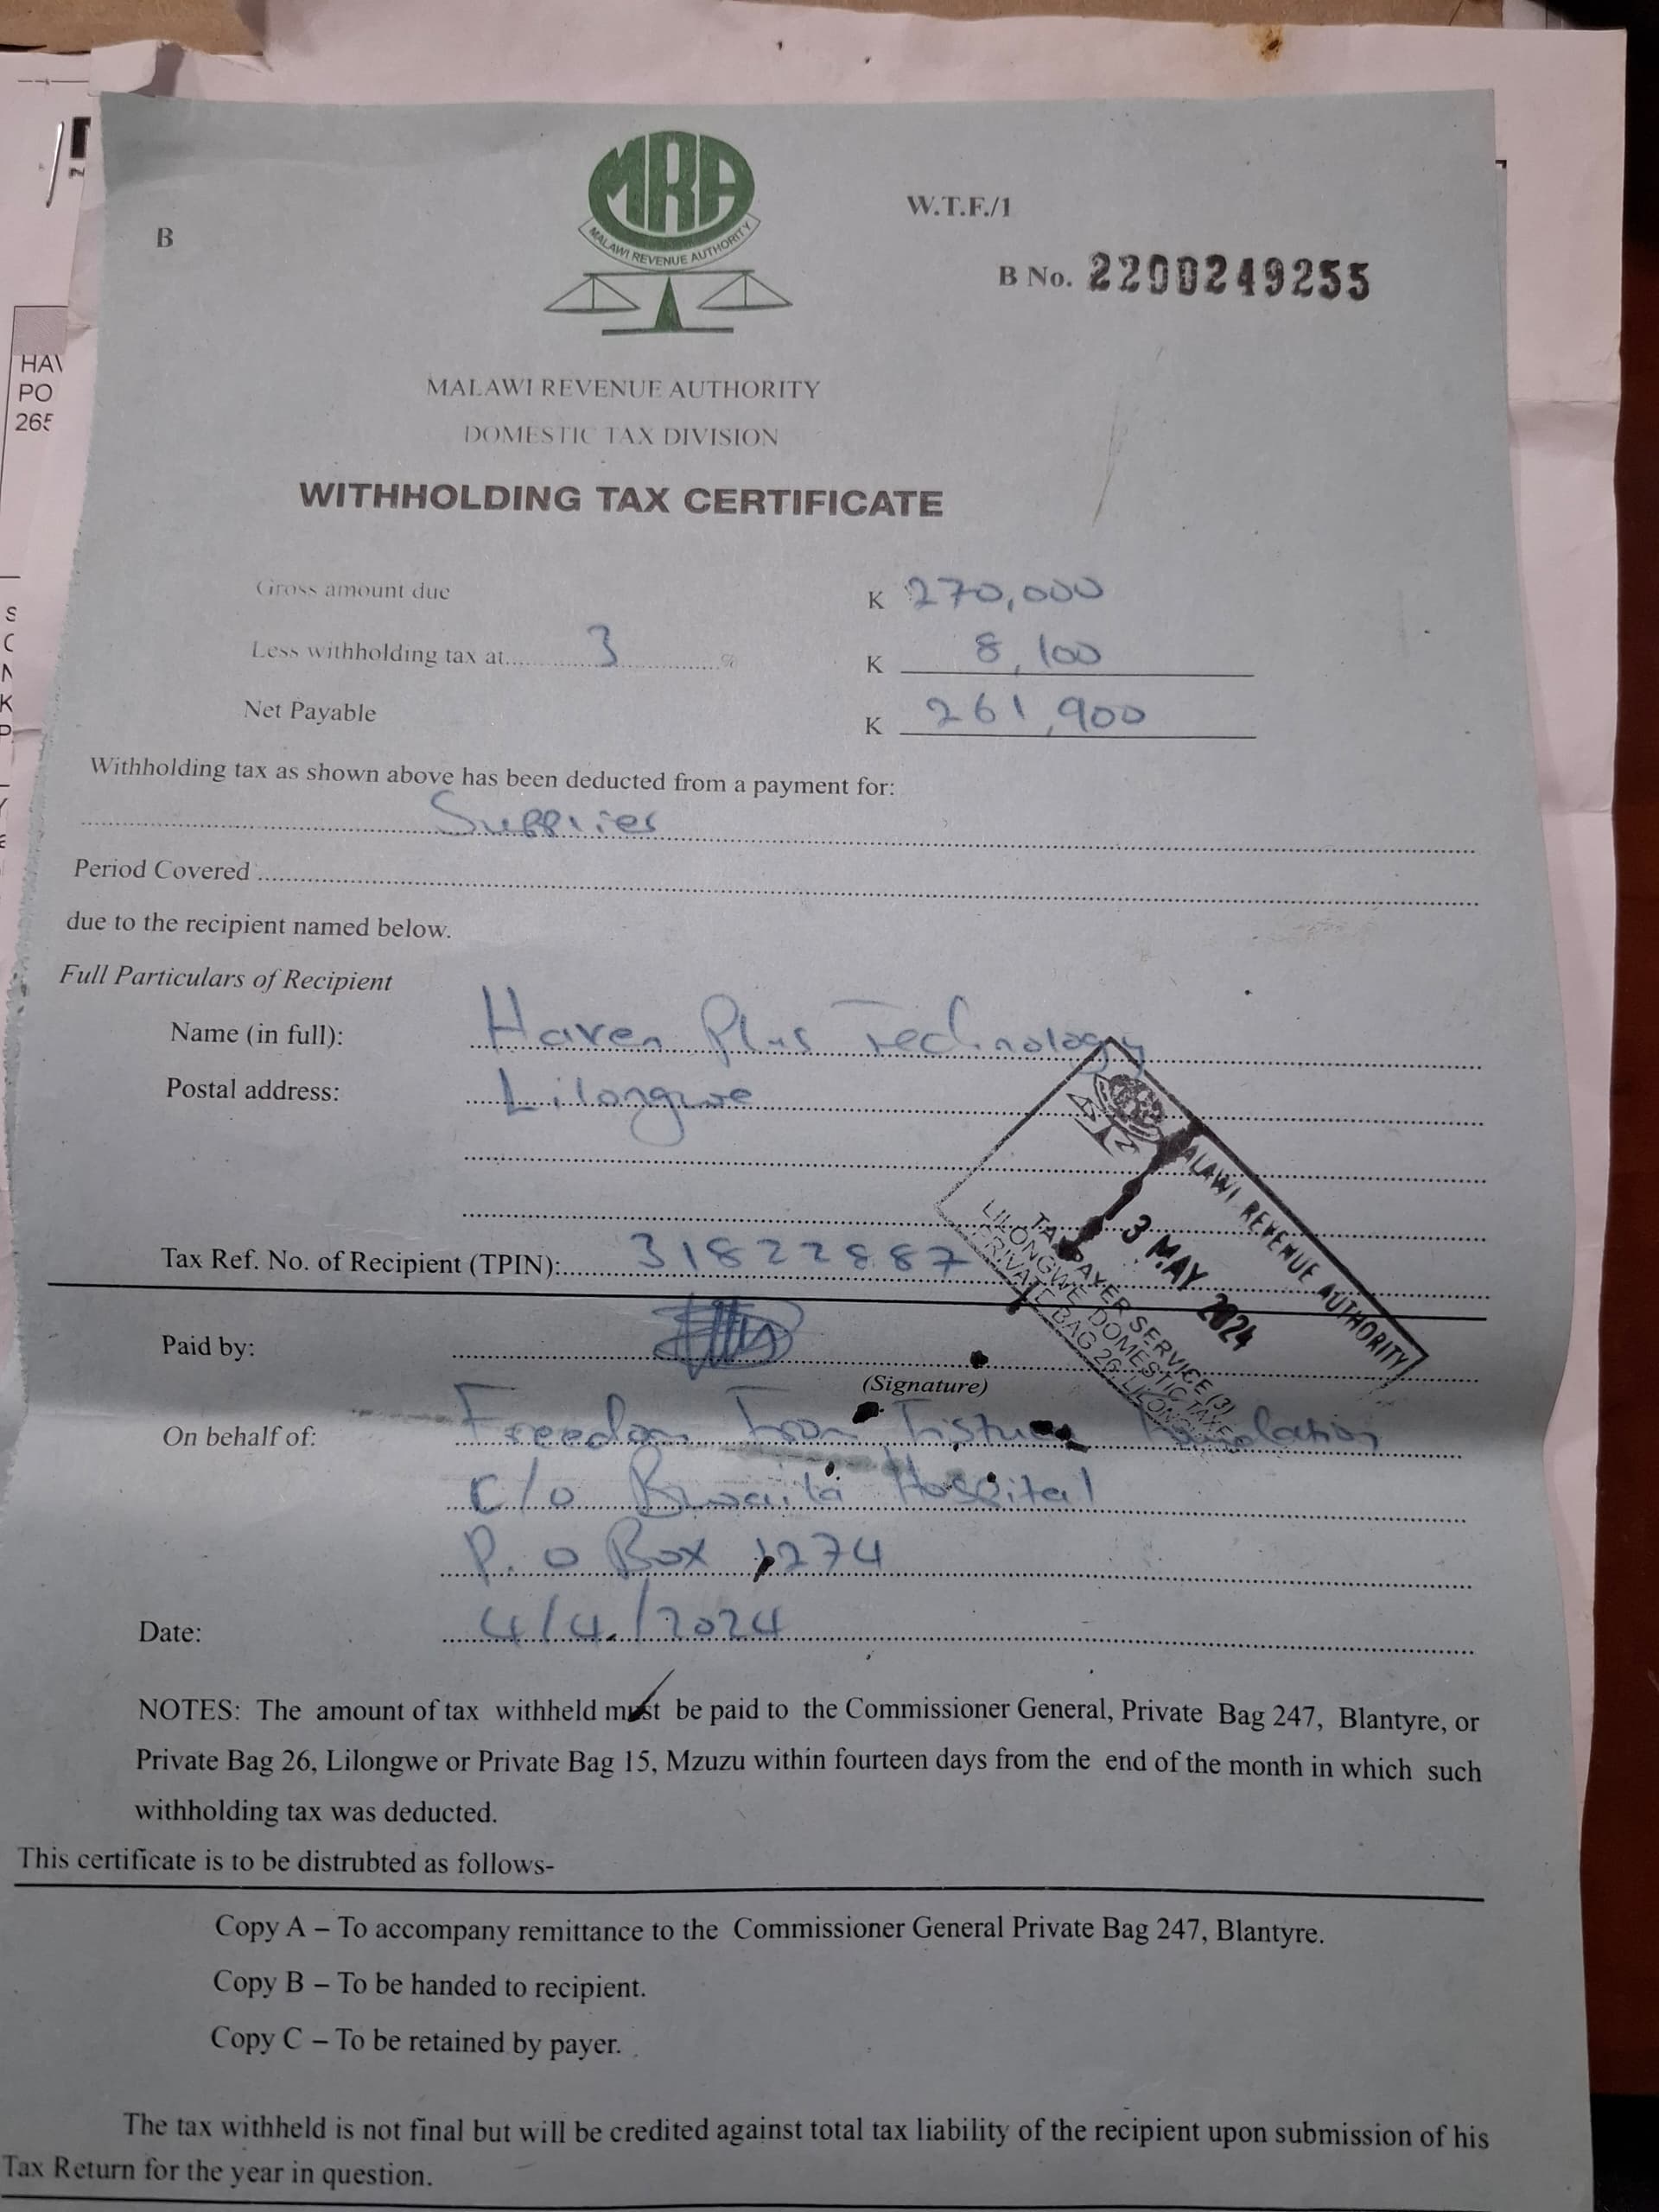 HAV
PO
265
MRA
MALAWI REVENUE AUTHORITY
B
W.T.F./1
B No. 2200249255
MALAWI REVENUE AUTHORITY
DOMESTIC TAX DIVISION
WITHHOLDING TAX CERTIFICATE
Gross amount due K 270,000
Less withholding tax at 3 % K 8,100
Net Payable K 261,900
Withholding tax as shown above has been deducted from a payment for:
Supplies
Period Covered
due to the recipient named below.
Full Particulars of Recipient
Name (in full): Haven Plus Technology
Postal address: Lilongwe
Tax Ref. No. of Recipient (TPIN): 31822887
MALAWI REVENUE AUTHORITY
3 MAY 2024
TAXPAYER SERVICE (3)
LILONGWE DOMESTIC TAXES
PRIVATE BAG 26, LILONGWE
Paid by:
(Signature)
On behalf of: Freedom from Fistula Foundation
c/o Bwaila Hospital
P. o Box 1274
Date: 4/4/2024
NOTES: The amount of tax withheld must be paid to the Commissioner General, Private Bag 247, Blantyre, or
Private Bag 26, Lilongwe or Private Bag 15, Mzuzu within fourteen days from the end of the month in which such
withholding tax was deducted.
This certificate is to be distrubted as follows-
Copy A – To accompany remittance to the Commissioner General Private Bag 247, Blantyre.
Copy B – To be handed to recipient.
Copy C – To be retained by payer.
The tax withheld is not final but will be credited against total tax liability of the recipient upon submission of his
Tax Return for the year in question.